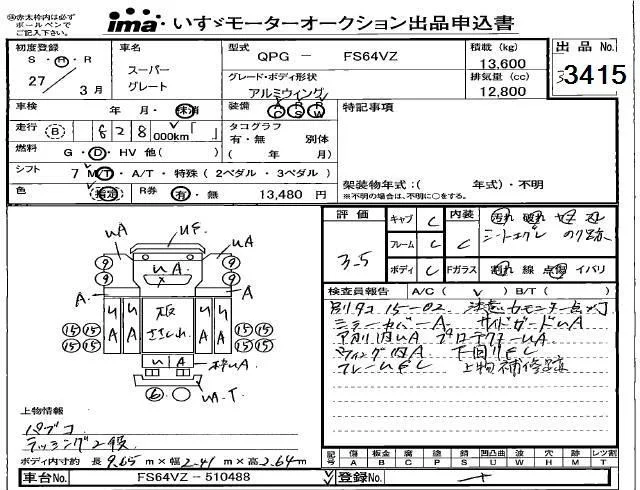 ※赤太枠内は必ず
ボールペンで
ご記入下さい。
ima・いすゞモーターオークション出品申込書
初度登録 車名 型式 積載 (kg) 出品 No.
S・H・R スーパー QPG － FS64VZ 13,600
27 / 3月 グレート グレード・ボディ形状 排気量 (cc) 3415
アルミウイング 12,800
車検 年・月・抹消 装備 A/C P/S P/W 特記事項
走行 (B) 628,000km「 」 タコグラフ
有・無 別体
燃料 G・D・HV 他( ) ( 年 月)
シフト 7 M/T・A/T・特殊 (2ペダル・3ペダル)
架装物年式:( 年式)・不明
※不明の場合は、不明に○をする。
色 指定 R券 有・無 13,480 円
評価 キャブ C 内装 汚れ 破れ
3-5 フレーム C C シートスグレ
ボディ C Fガラス 割れ 線 点傷 イバリ
検査員報告 A/C( ∨ ) B/T( )
別タコ15-02
ミラーカバーA サイドガードuA
プロテクターuA
下回りEC
上物補修跡
uA uF uA
9 9 uA 9 9
A A
uA uA 板 uA uA
ささくれ
15 15 15 15
15 15 15 15
uA 枠uA
6 uA・T
上物情報
パブコ
ラッシング2段
ボディ内寸約 長 9.65 m×幅 2.41 m×高 2.64 m
記号 傷 板金 腐 塗 錆 凹凸曲 波 穴 跡 レツ割
A B C P S U W H M T
車台No. FS64VZ－510488 登録No.